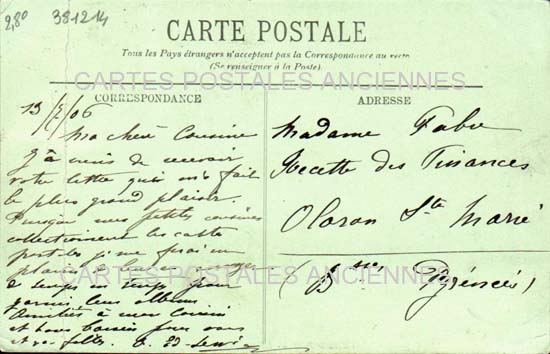 2,80 381214
CARTE POSTALE
Tous les Pays étrangers n'acceptent pas la Correspondance au recto
(Se renseigner à la Poste)
CARTES POSTALES ANCIENNES
CORRESPONDANCE
13/5/06
Ma chère Cousine
de recevoir
votre lettre qui m'a fait
le plus grand plaisir.
Puisque mes petites cousines
collectionnent les cartes
postales j'me ferai un
plaisir de leur
de temps temps pour
garnir leur album
Amitiés à mon cousin
et bons baisers pour vous
et vos filles.
ADRESSE
Madame Fabre
Recette des Finances
Oloron Ste Marie
(Bsses Pyrénées)
CARTES POSTALES ANCIENNES